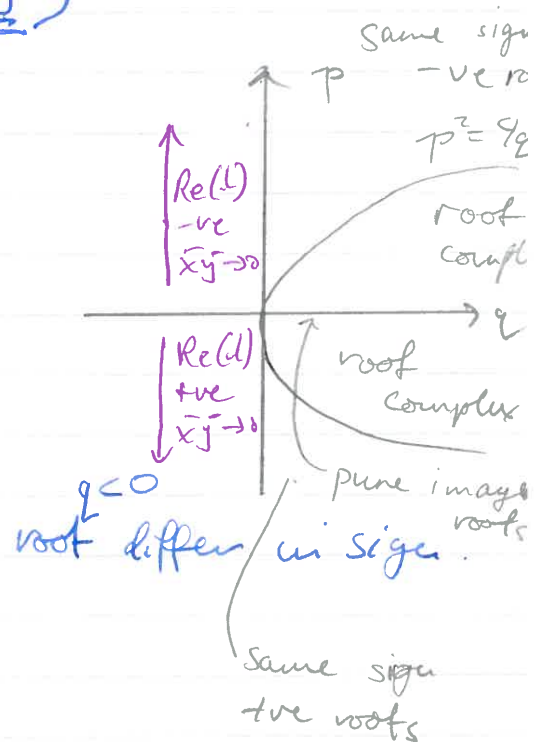 same sign
-ve ro
p
p² = 4q
Re(λ)
-ve
x̄ȳ→0
root
compl
q
Re(λ)
+ve
x̄ȳ→0
root
complex
q<0
pure imag
roots
root differ in sign.
Same sign
+ve roots